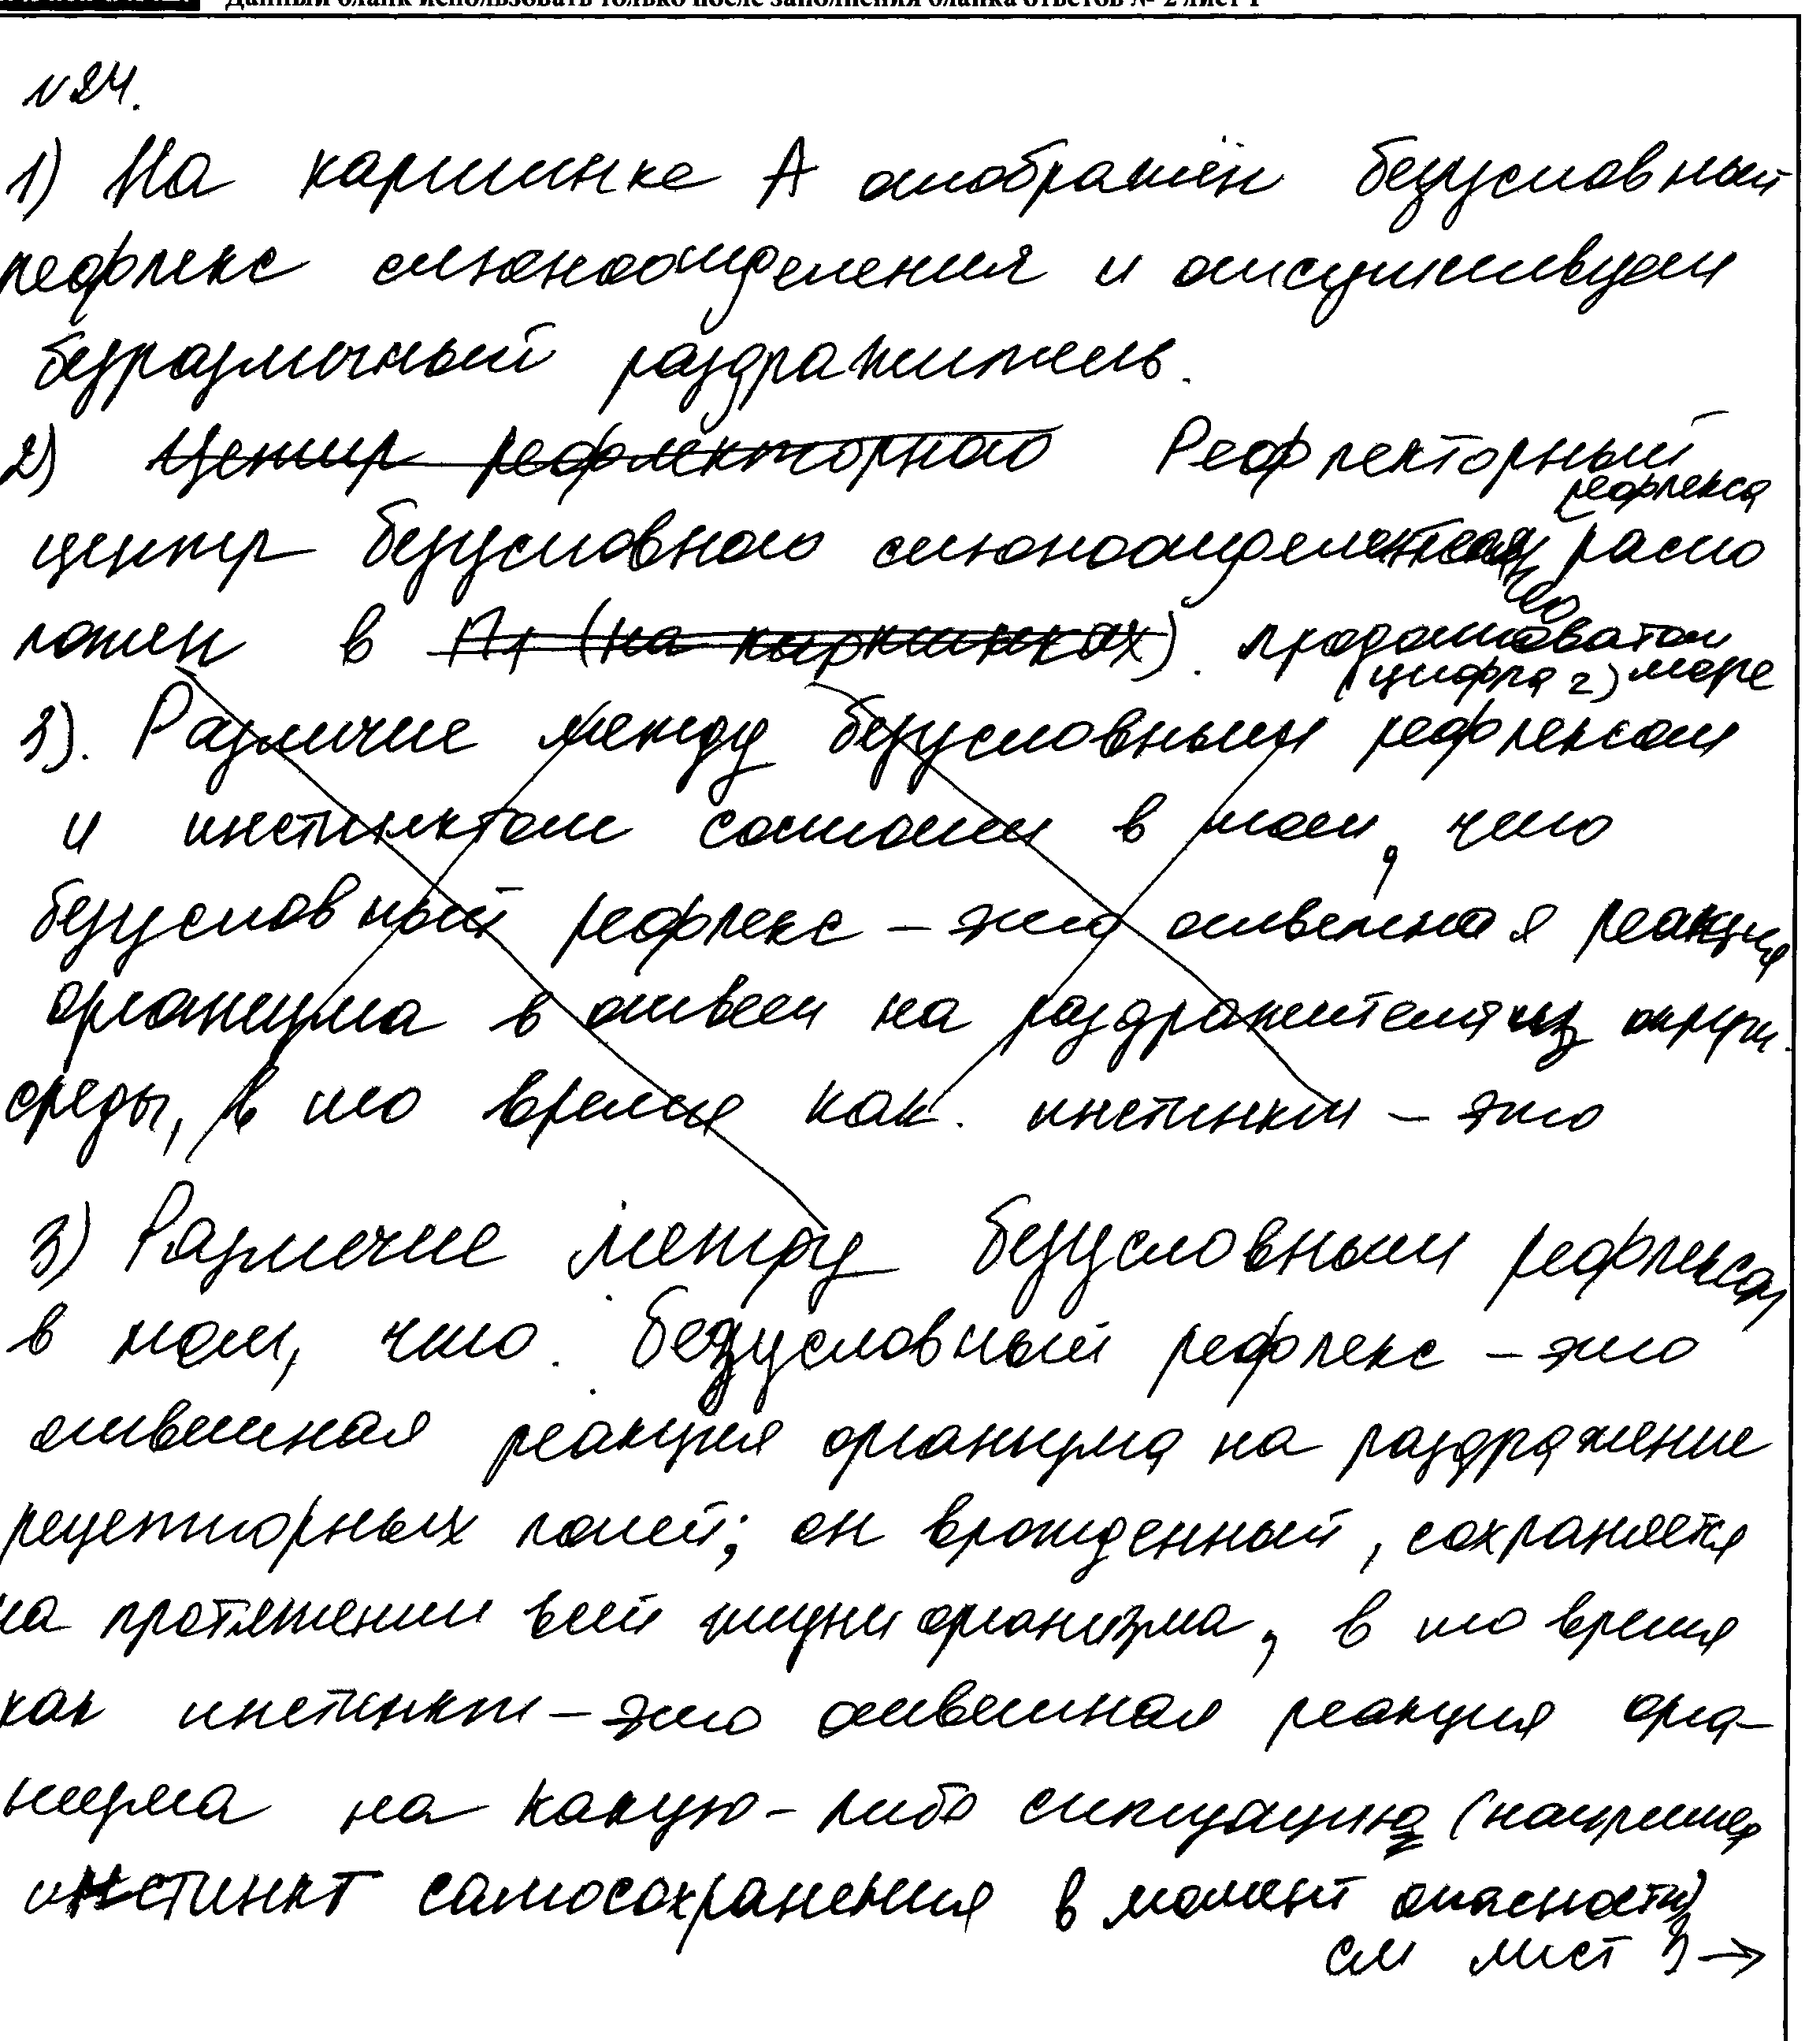 Данный бланк использовать только после заполнения бланка ответов № 2 лист 1
N24.
1) На картинке А отображён безусловный
рефлекс слюноотделения и отсутствует
безразличный раздражитель.
2) Центр рефлекторного Рефлекторный
рефлекса
центр безусловного слюноотделительного распо
ложен в (на картинках). продолговатом
(цифра 2) мозге
3). Различие между безусловным рефлексом
и инстинктом состоит в том, что
безусловный рефлекс – это ответная реакция
организма в ответ на раздражителя из окруж.
среды, в то время как. инстинкт – это
3) Различие между безусловным рефлексом
в том, что. безусловный рефлекс – это
ответная реакция организма на раздражение
рецепторных полей; он врожденный, сохраняется
на протяжении всей жизни организма, в то время
как инстинкт – это ответная реакция орга-
низма на какую-либо ситуацию (например
инстинкт самосохранения в момент опасности)
см лист 3 →